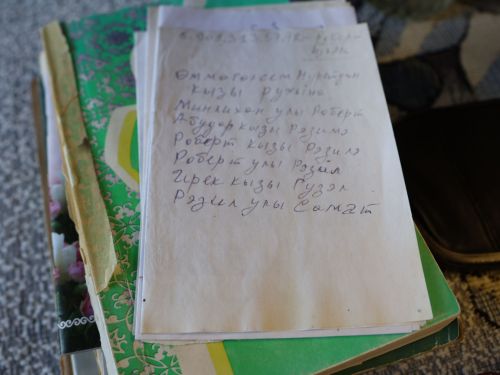 Өммогөлсем Нуретдин
кызы Рузина
Минлихан улы Роберт
Абудар кызы Рәзимә
Роберт кызы Рәзилә
Роберт улы Рәзил
Ирек кызы Гүзәл
Рәзил улы Самат